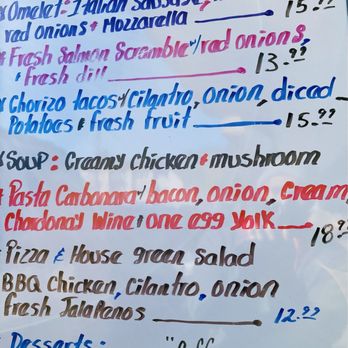 Omelet: Italian Sausage,
red onions & Mozzarella 15.99
Fresh Salmon Scramble w/ red onions,
& fresh dill 13.99
Chorizo tacos w/ Cilantro, onion, diced
Potatoes & fresh fruit 15.99
Soup: Creamy Chicken & mushroom
Pasta Carbonara w/ bacon, onion, Cream,
Chardonay Wine & one egg yolk 18.99
Pizza & House green Salad
BBQ Chicken, Cilantro, onion
fresh Jalapenos 12.99
Desserts: